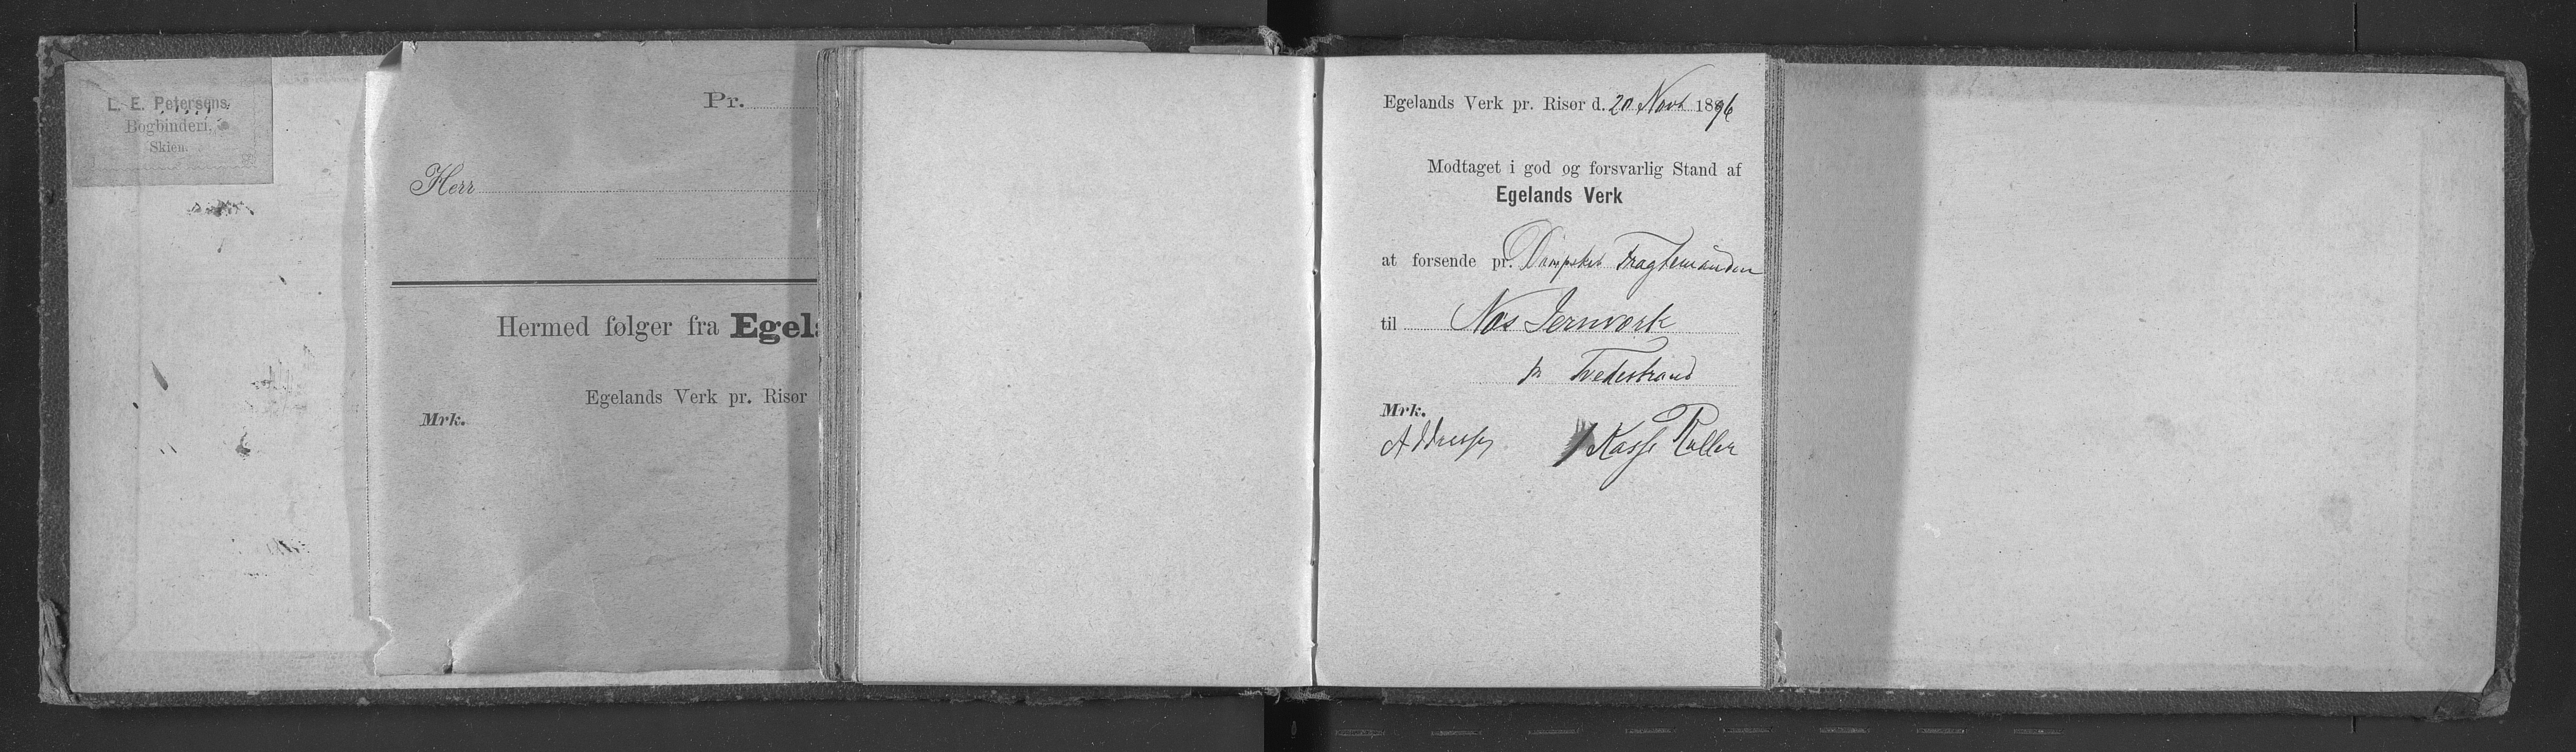 L. E. Petersens
Bogbinderi.
Skien.
Pr.
Herr
Hermed følger fra Egel
Egelands Verk pr. Risør
Mrk.
Egelands Verk pr. Risør d. 20 Novb 1896
Modtaget i god og forsvarlig Stand af
Egelands Verk
at forsende pr. Dampskib Fragtemanden
til Næs Jernværk
pr Tvedestrand
Mrk.
1 Kasse Ruller